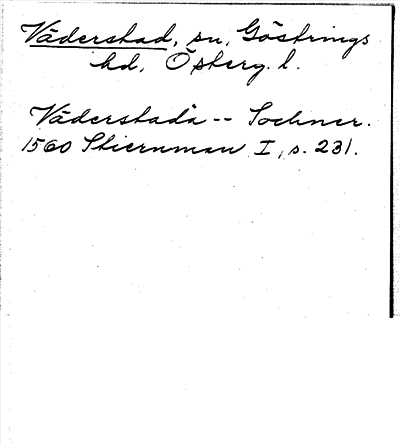 Väderstad, sn, Göstrings
hd, Östberg. l.
Väderstada -- Sochner.
1560 Stiernman I, s. 231.